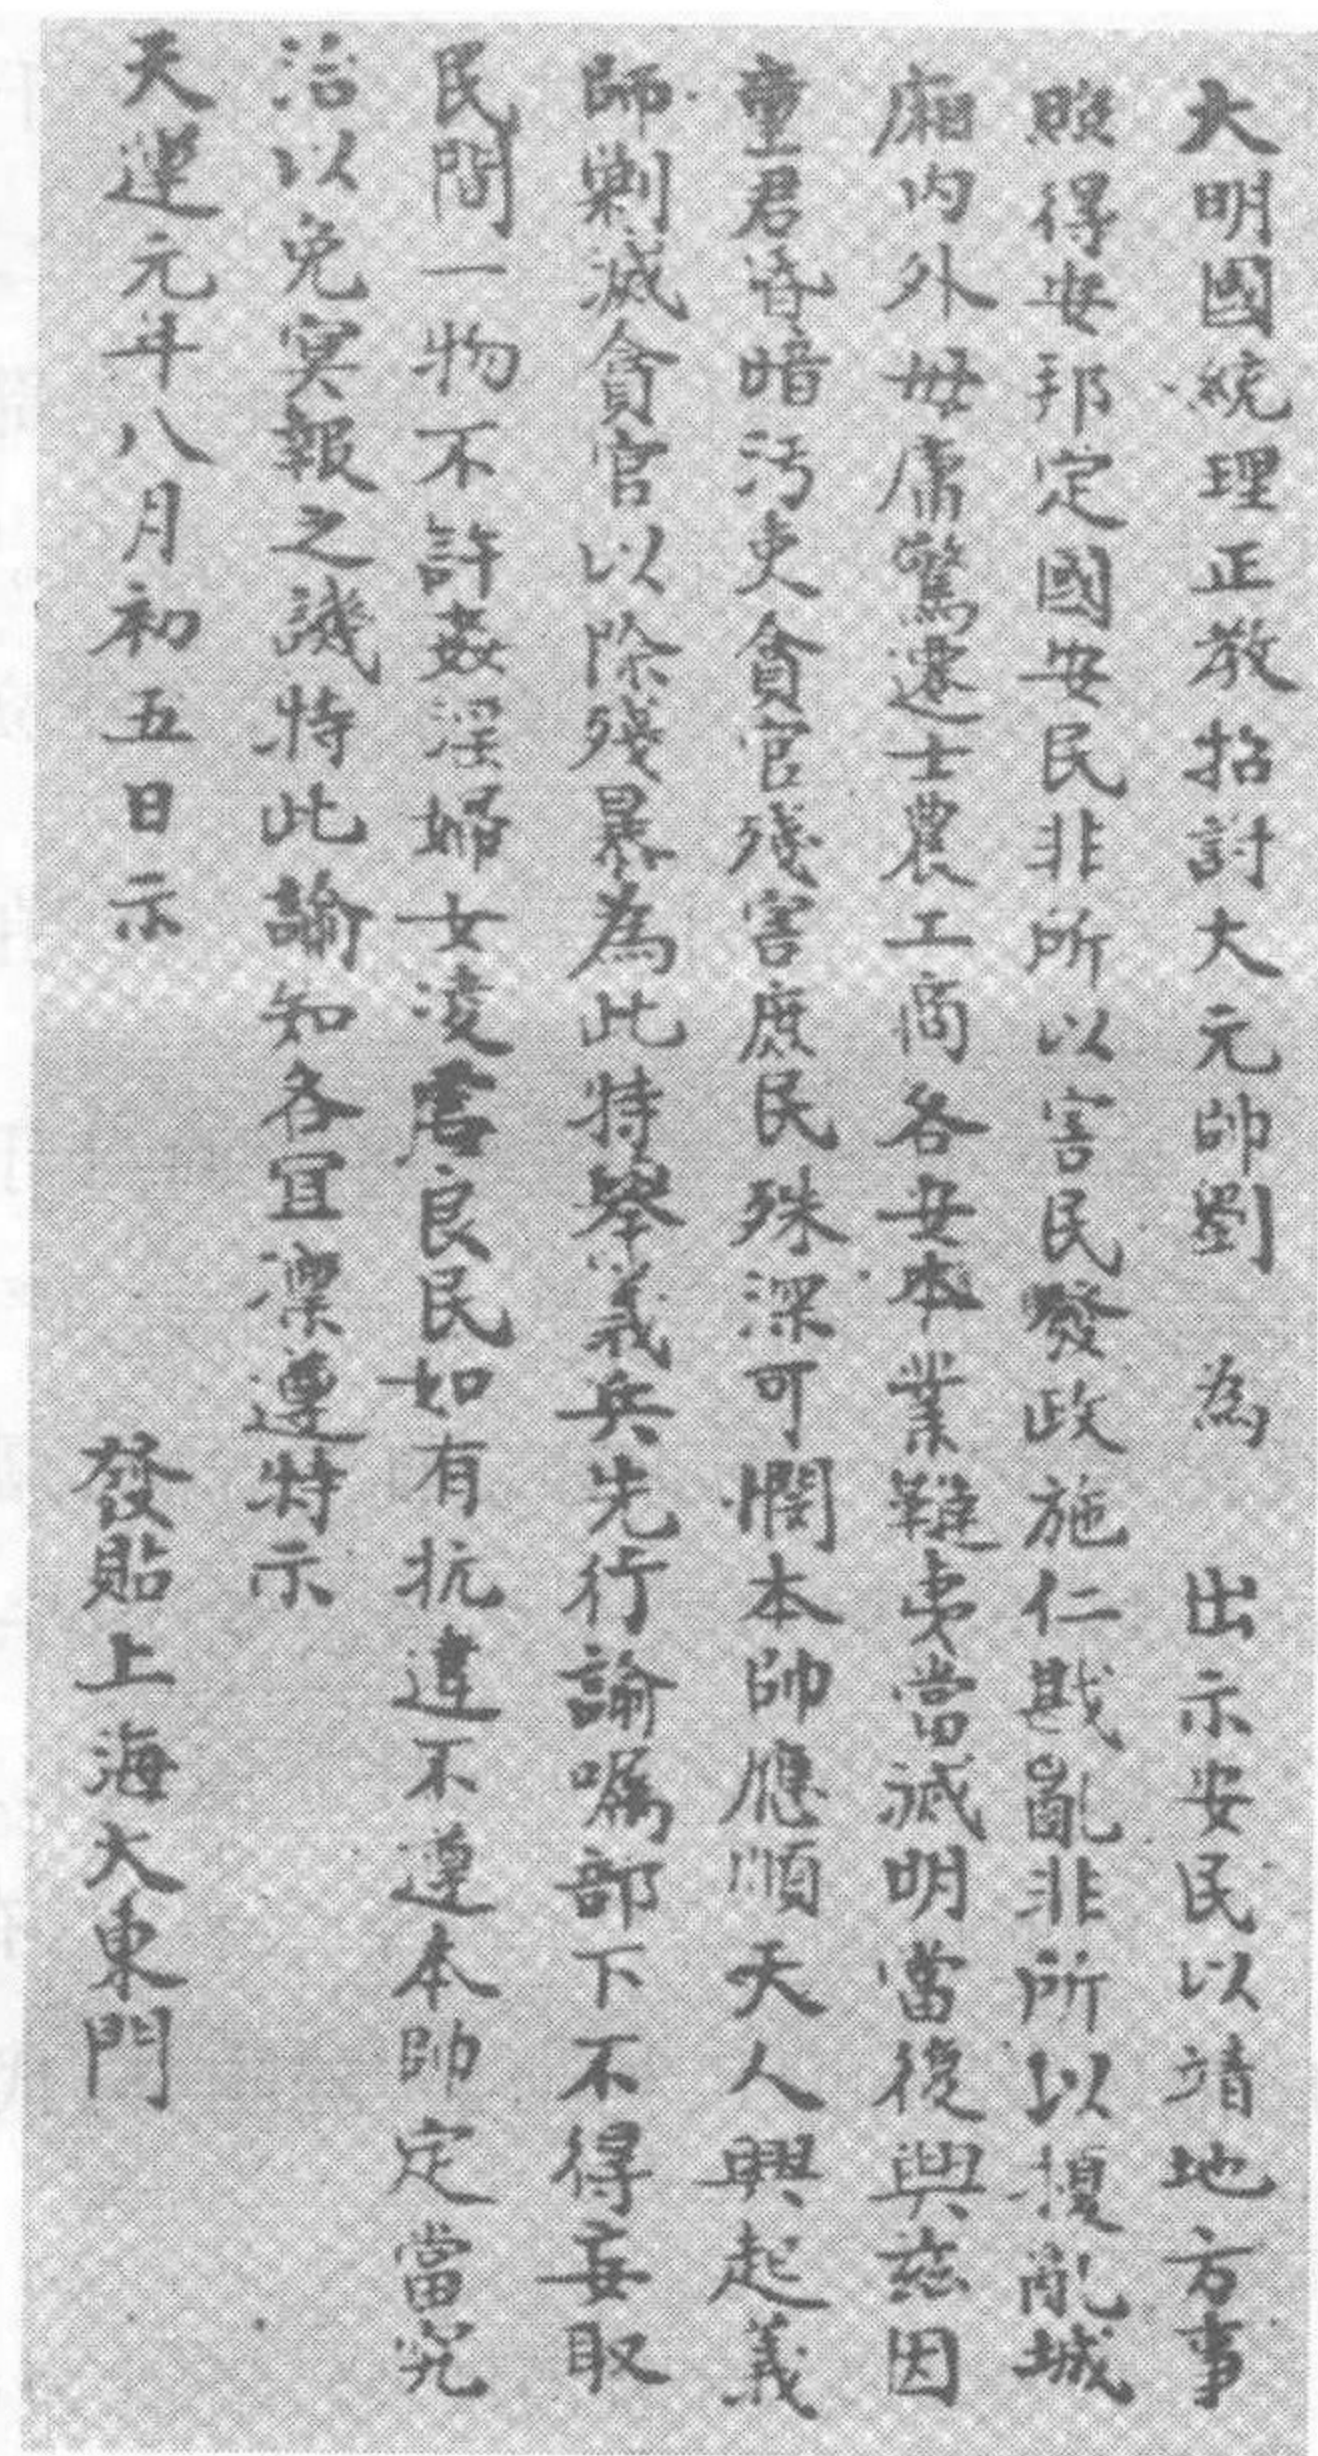 大明國統理正教招討大元帥劉　為　出示安民以靖地方事
照得安邦定國安民非所以害民發政施仁戡亂非所以擾亂城
廂內外毋庸驚遷士農工商各安本業韃夷當滅明當復興茲因
童君昏暗污吏貪官殘害庶民殊深可憫本帥應順天人興起義
師剿滅貪官以除殘暴為此特舉義兵先行諭囑部下不得妄取
民間一物不許姦淫婦女凌虐良民如有抗違不遵本帥定當究
治以免冥報之譏特此諭知各宜凜遵特示
天運元年八月初五日示　發貼上海大東門